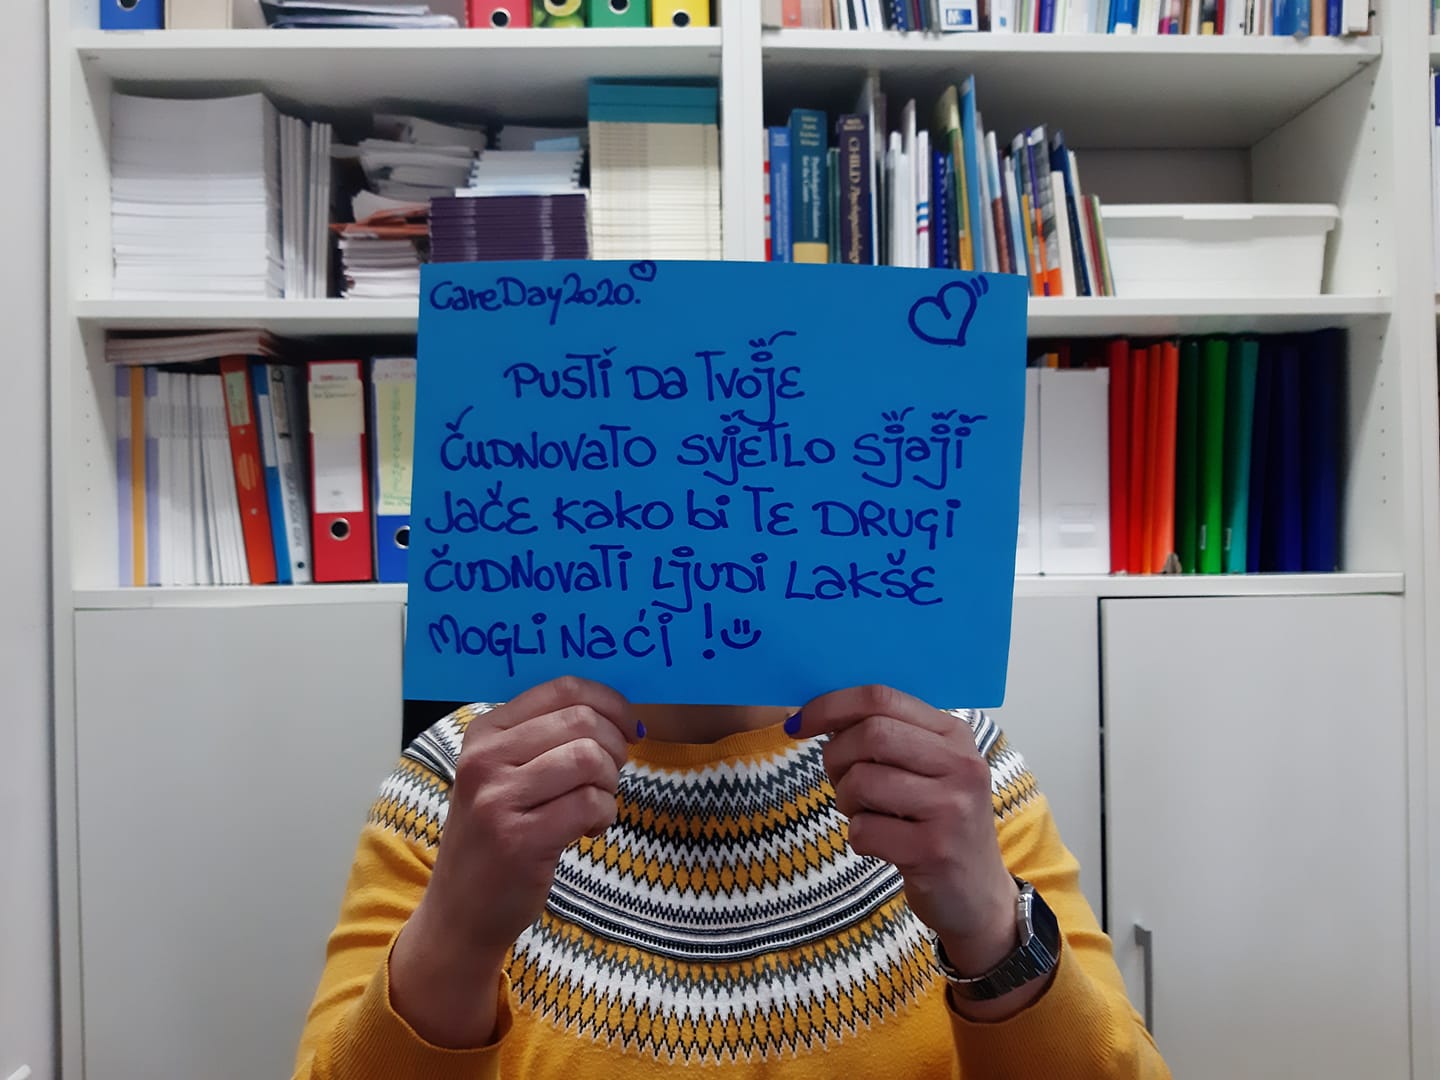 CareDay2020.
PUSTI DA TVOJE
ČUDNOVATO SVJETLO SJAJI
JAČE KAKO BI TE DRUGI
ČUDNOVATI LJUDI LAKŠE
MOGLI NAĆI !
CHILD Psychopathology